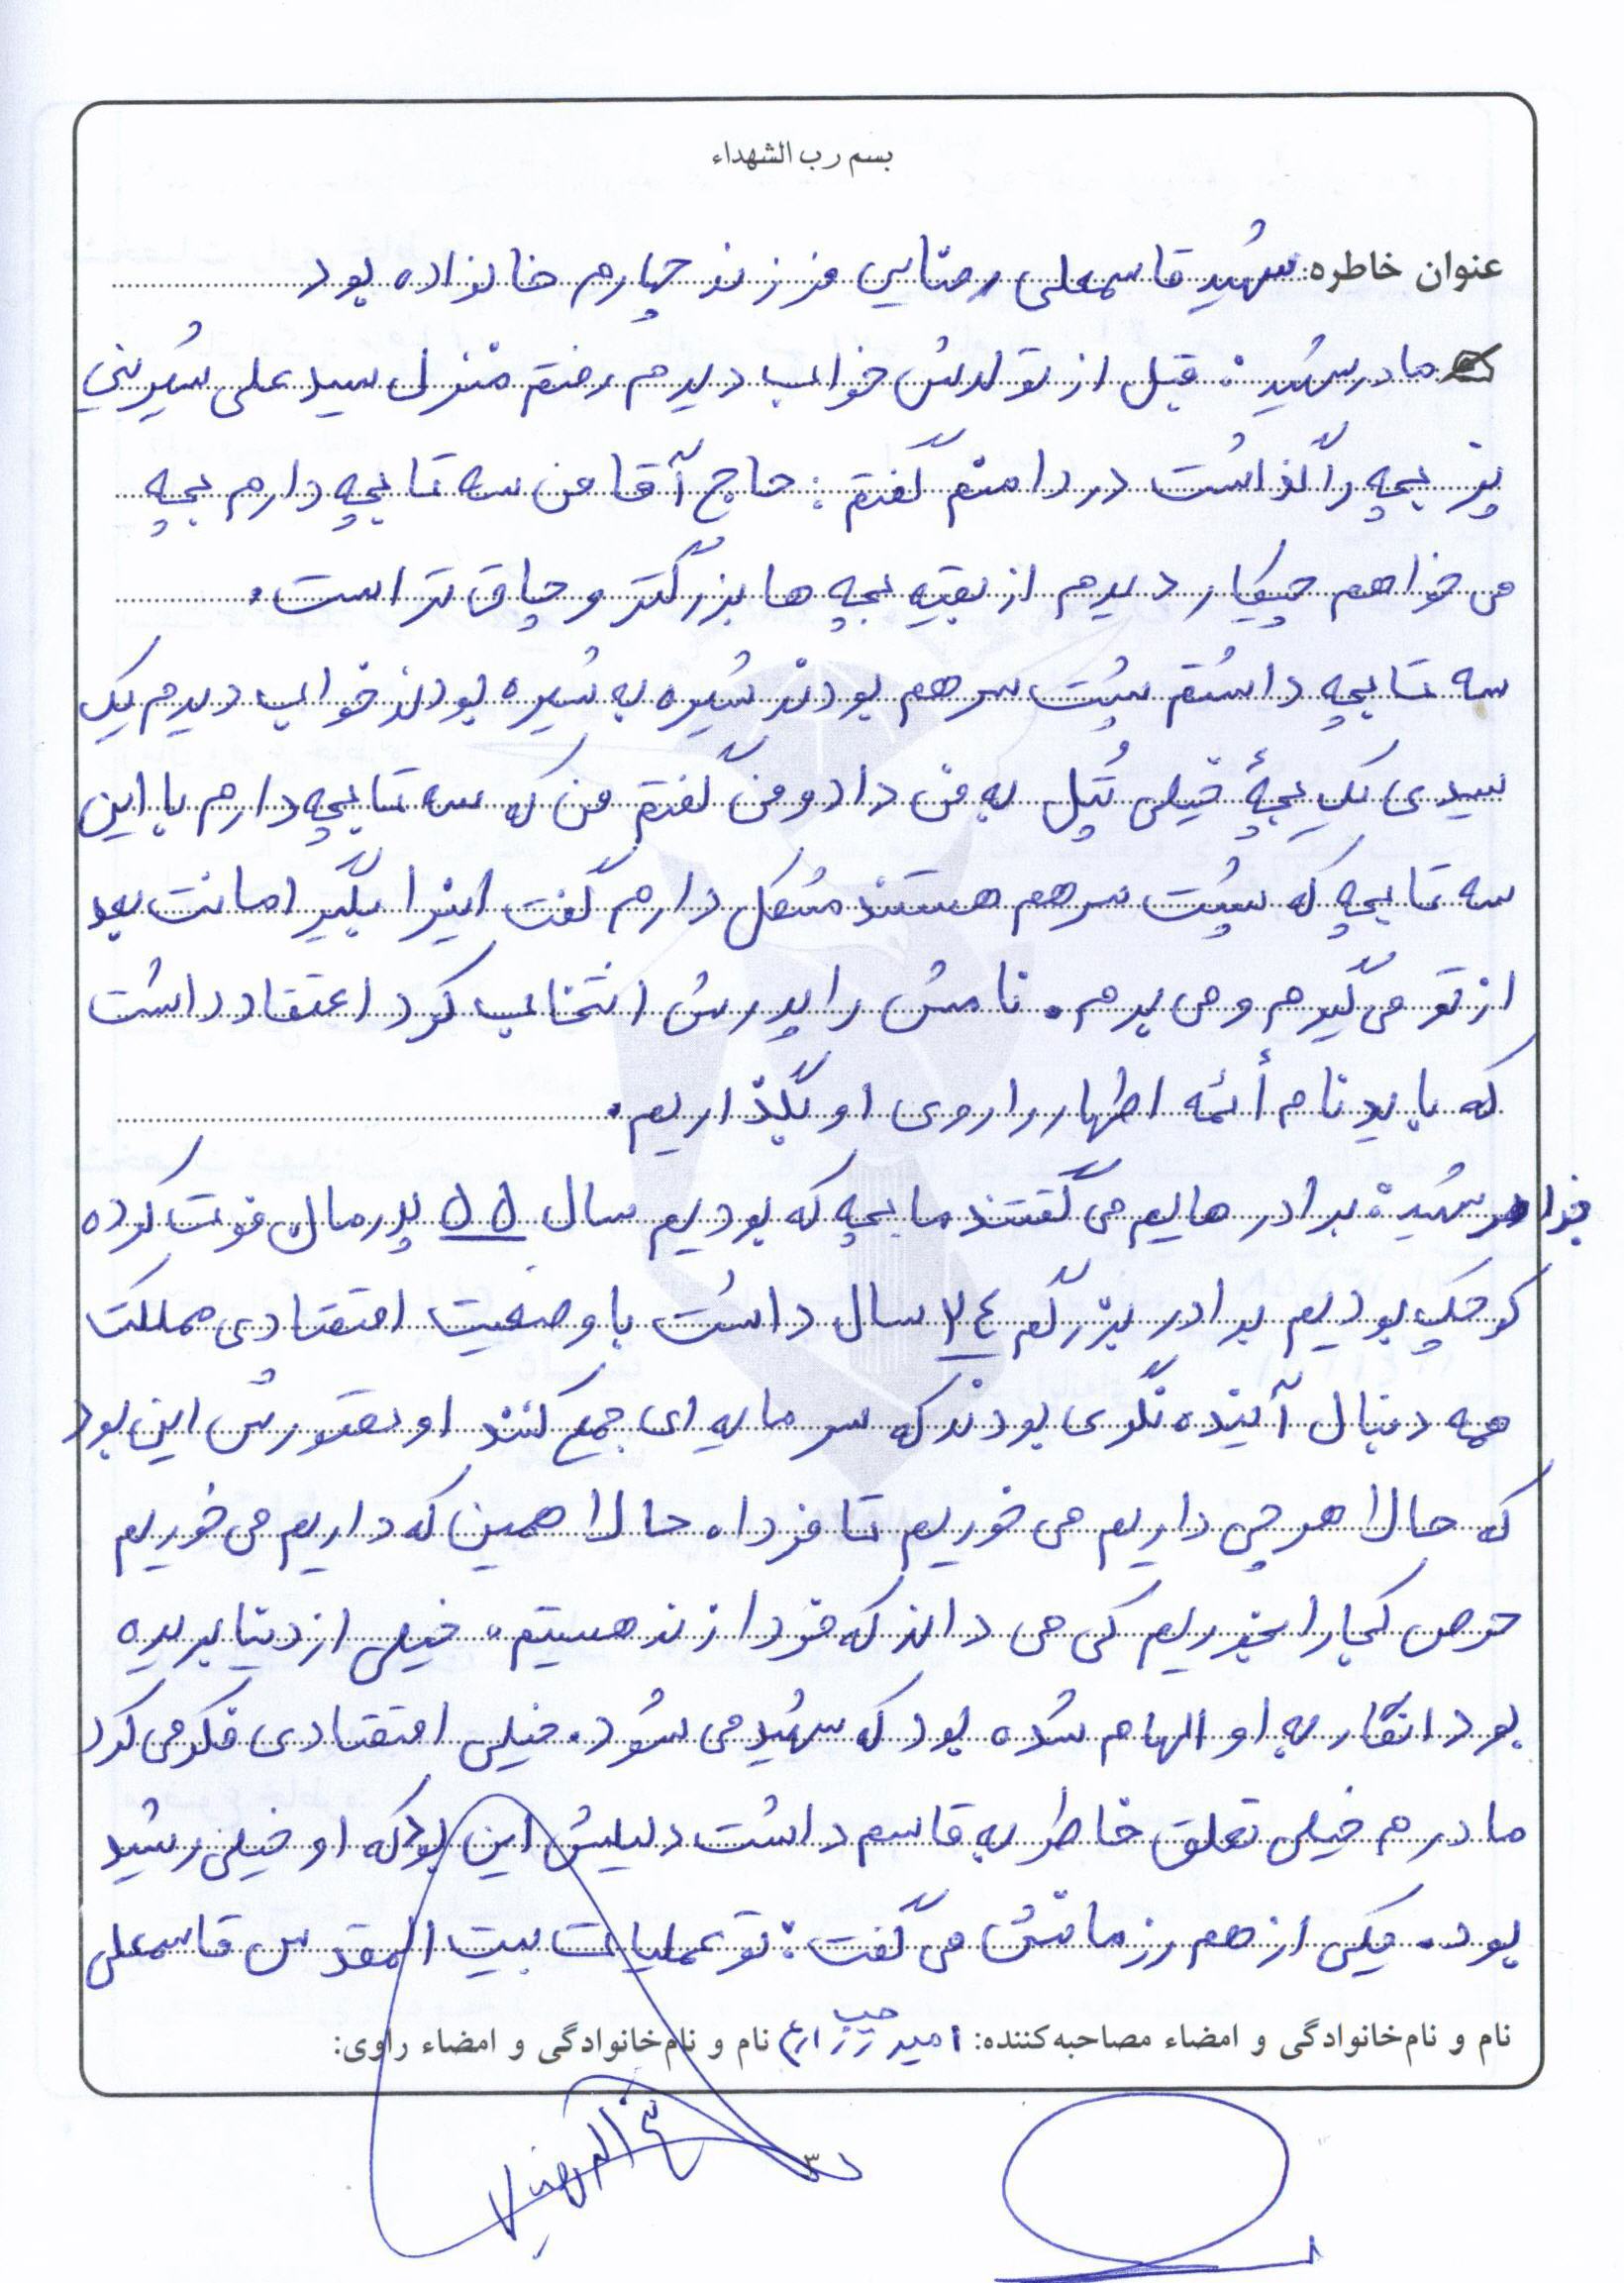 بسم رب الشهداء
عنوان خاطره: شهید قاسمعلی رضایی فرزند چهارم خانواده بود
مادر شهید: قبل از تولدش خواب دیدم رفتم منزل سید علی شیرینی
پز بچه را گذاشت در دامنم گفتم: حاج آقا من سه تا بچه دارم بچه
می خواهم چیکار دیدم از بقیه بچه ها بزرگتر و چاق تر است.
سه تا بچه داشتم پشت سر هم بودند شیره به شیره بودند خواب دیدم یک
سیدی یک بچهٔ خیلی تپل به من داد و من گفتم من که سه تا بچه دارم با این
سه تا بچه که پشت سر هم هستند مشکل دارم گفت اینرا بگیر امانت بعد
از تو می گیرم و می برم. نامش را پدرش انتخاب کرد اعتقاد داشت
که باید نام أئمه اطهار را روی او بگذاریم.
خواهر شهید: برادر هایم می گفتند ما بچه که بودیم سال ۵۵ پدرمان فوت کرده
کوچک بودیم برادر بزرگم ۲٤ سال داشت با وضعیت اقتصادی مملکت
همه دنبال آینده نگری بودند که سرمایه ای جمع کنند او تصورش این بود
که حالا هر چی داریم می خوریم تا فردا، حالا همین که داریم می خوریم
حرص کجا را بخوریم کی می داند که فردا زنده هستیم، خیلی از دنیا بریده
بود انگار به او الهام شده بود که شهید می شود. خیلی اقتصادی فکر می کرد
مادرم خیلی تعلق خاطر به قاسم داشت دلیلش این بود که او خیلی رشید
بود. یکی از هم رزمانش می گفت: تو عملیات بیت المقدس قاسمعلی
نام و نام‌خانوادگی و امضاء مصاحبه‌کننده: امید نام و نام‌خانوادگی و امضاء راوی:
۳